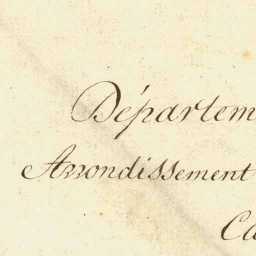 Départem
Arrondissement
Ca